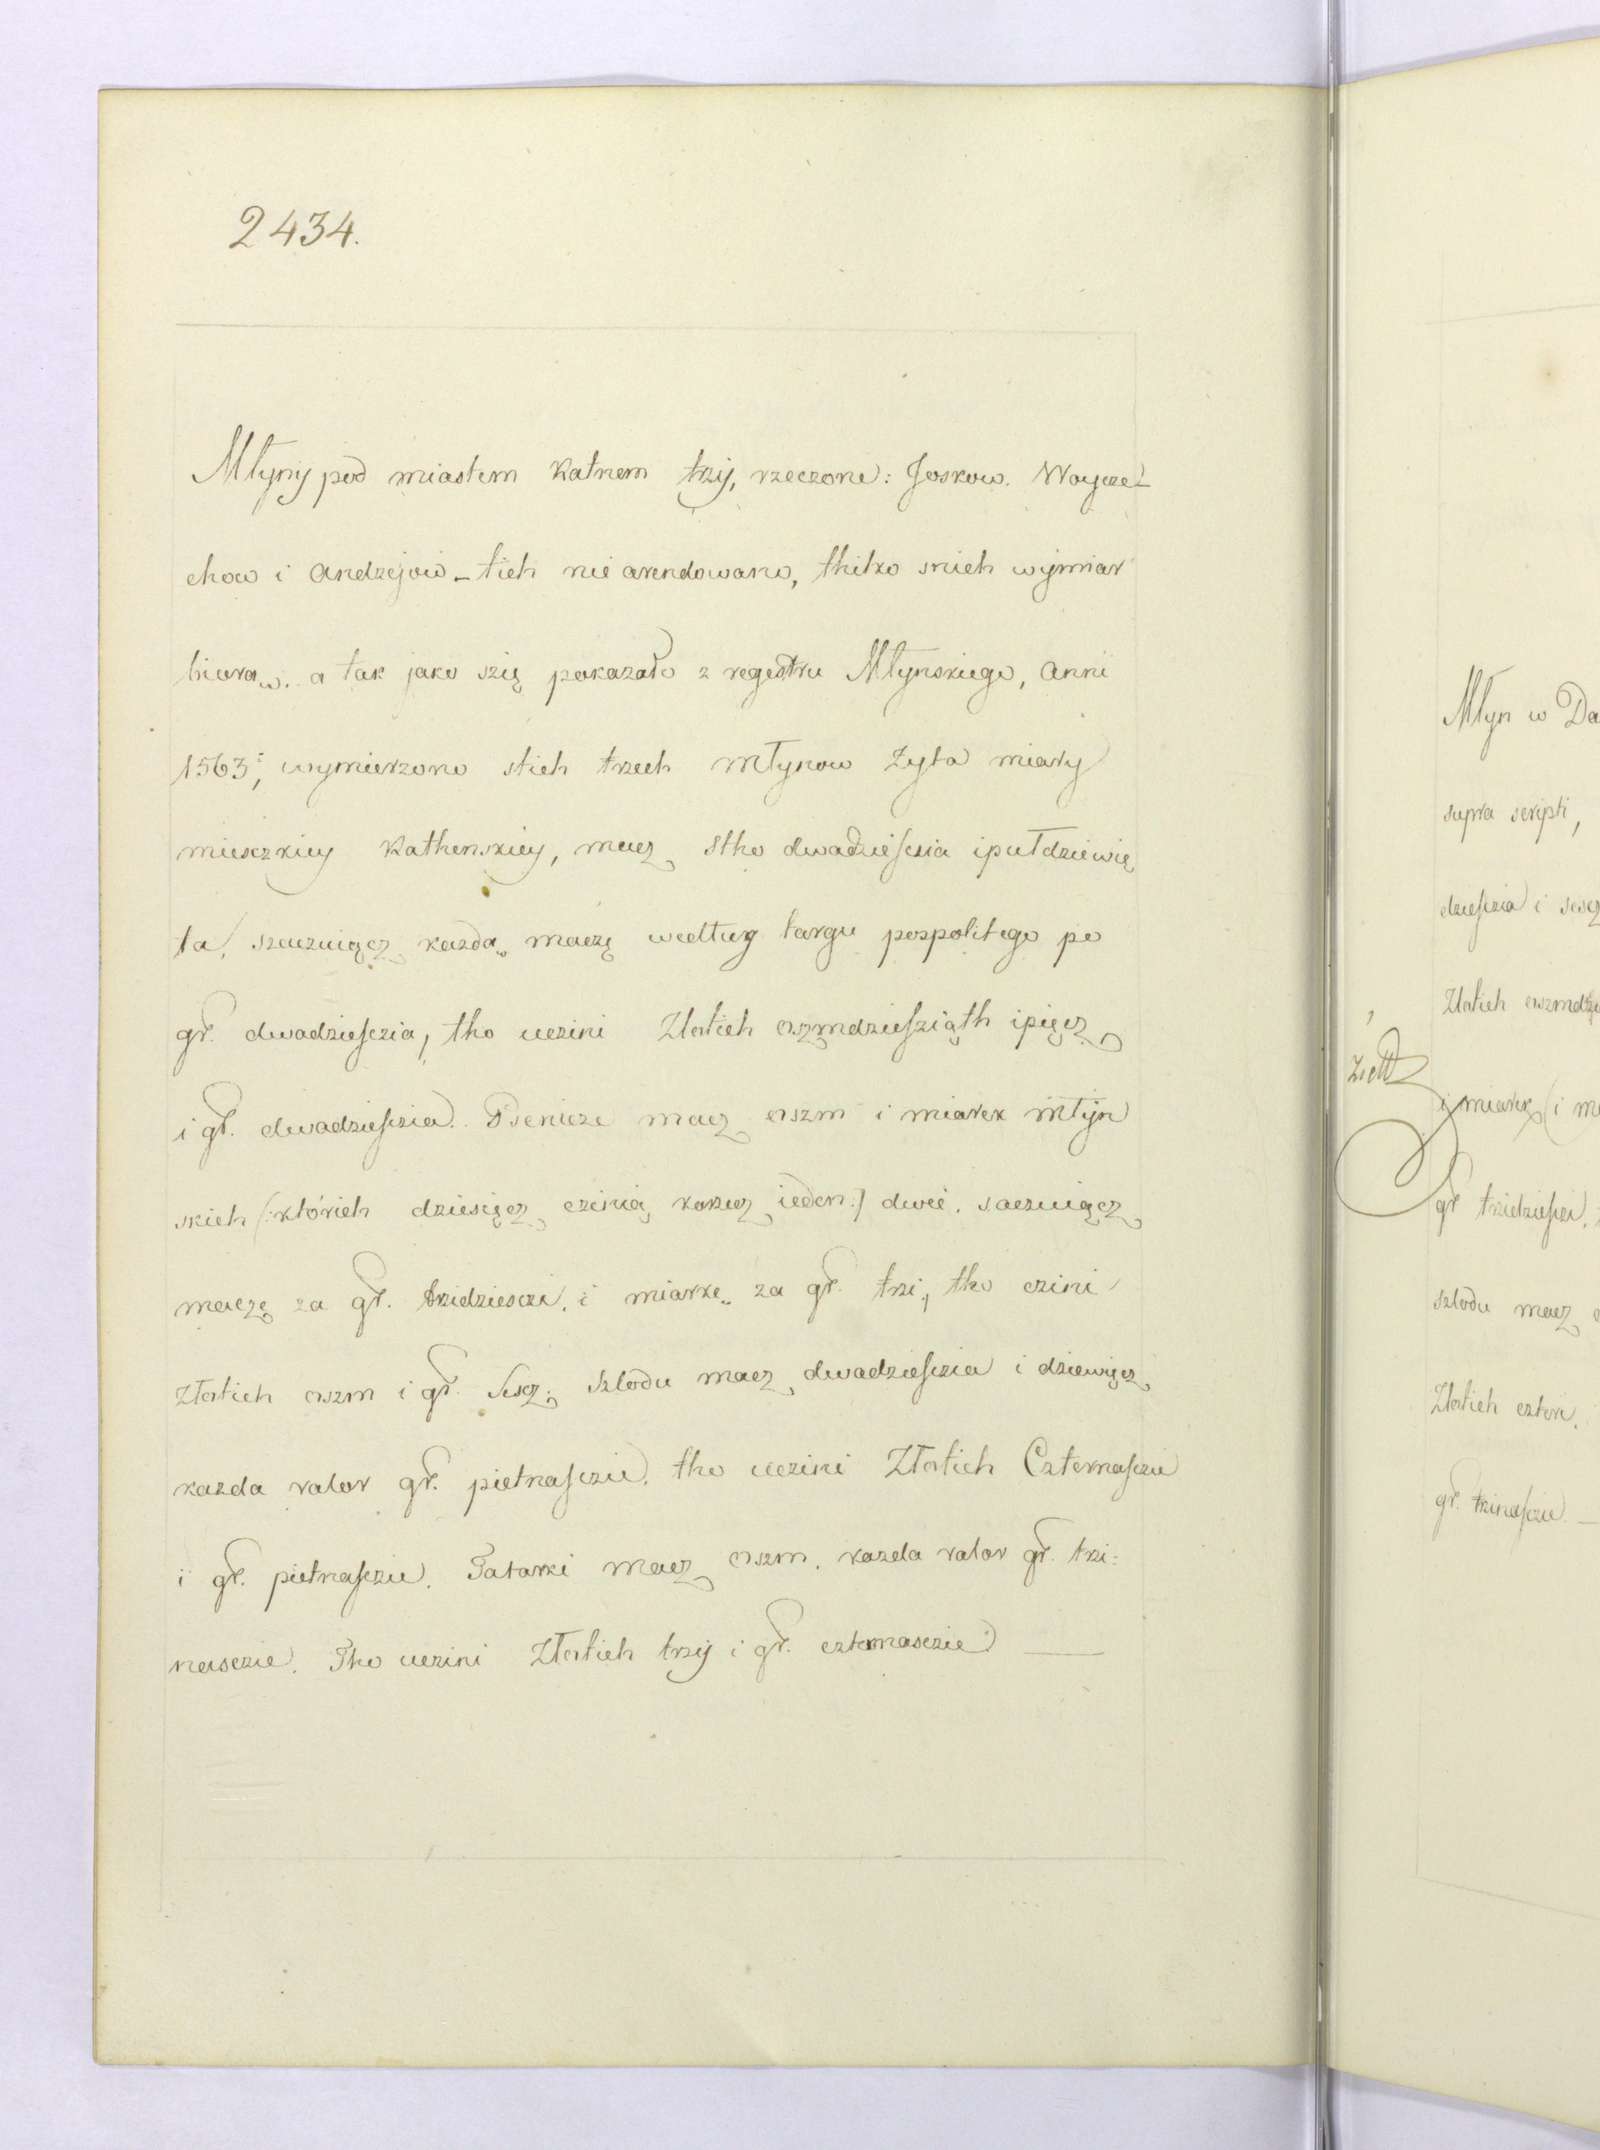 2434.
Młyny pod miastem Ratnem trzy, rzeczone: Joskow. Woycze-
chow i Andrzejow - tich nie arendowano, thilko snich wymiar
biorą. a tak jako szię pokazało z regestru Młynskiego, Anni
1563, wymierzono stich trzech młynow Zyta miary
miesczkiey Rathenskiey, macz stho dwadziesczia ipułdziewię
ta, szaczuiącz każdą maczę według targu pospolitego po
gr. dwadziesczia, tho uczini Złotich oszmdziesziąth ipięcz
i gr. dwadziesczia. Psenicze macz oszm i miarek młyn
skich (:którich dziesięcz czinią korzecz ieden:) dwie. saczuiącz
maczę za gr. trzidziesczi, i miarkę za gr. trzi, tho czini
złotich oszm i gr. sescz. Szlodu macz dwadziesczia i dziewięcz
kazda valor gr. pietnasczie. tho uczini Złotich Czternasczie
i gr. pietnasczie. Tatarki macz oszm. kazda valor gr. trzi-
nasczie. Tho uczini Złotich trzy i gr. czternasczie
Młyn w Da
supra scripti,
dziesczia i sescz
Złotich oszmdzie
i miarek (i mł
gr trzidziesczi.
szlodu macz
Złotich cztery.
gr. trzinasczie.